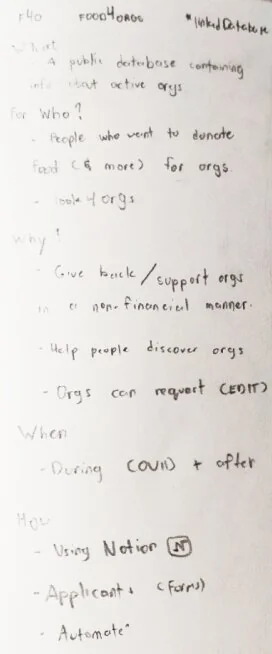 F4O FOOD4ORGS *linked Database
What
A public database containing
info about active orgs
For Who?
- People who want to donate
food (& more) for orgs.
- look 4 orgs
Why?
- Give back/support orgs
in a non-financial manner.
- Help people discover orgs
- Orgs can request (EDIT)
When
- During COVID + after
How
- Using Notion N
- Applicant (Forms)
- Automate